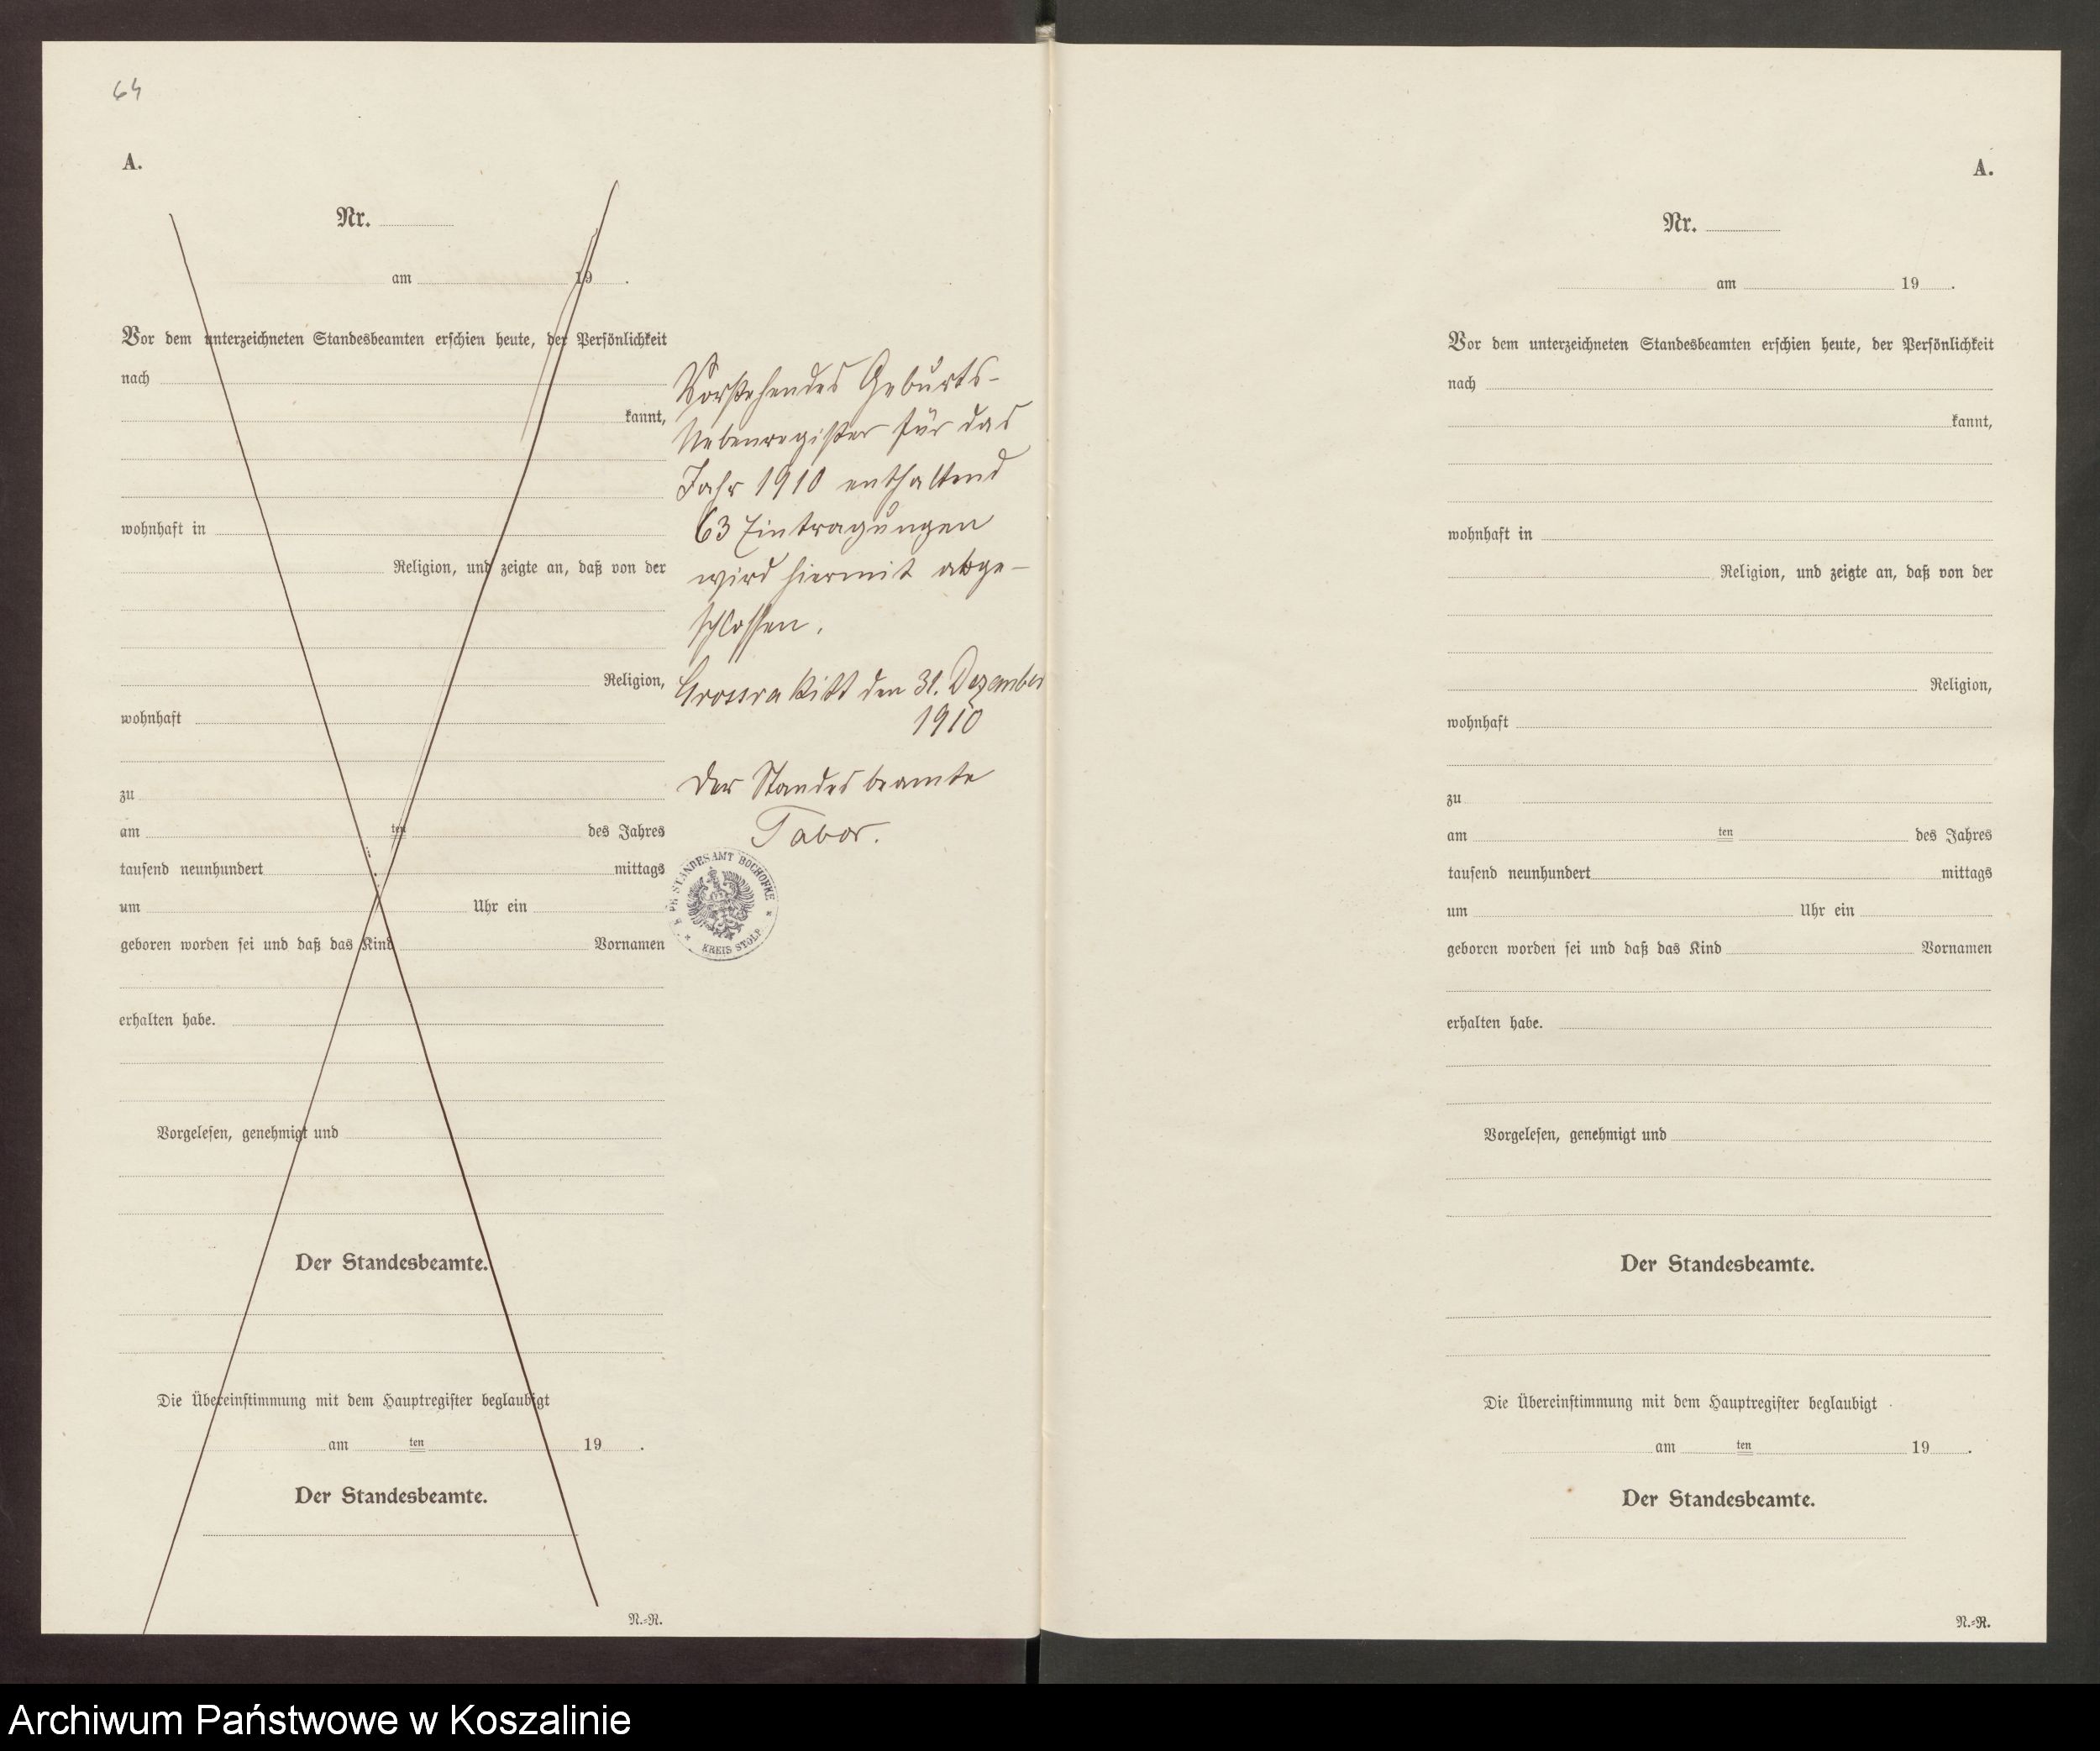 64
A.
Nr.
am 19 .
Vor dem unterzeichneten Standesbeamten erschien heute, der Persönlichkeit
nach
kannt,
wohnhaft in
Religion, und zeigte an, daß von der
Religion,
wohnhaft
zu
am ten des Jahres
tausend neunhundert mittags
um Uhr ein
geboren worden sei und daß das Kind Vornamen
erhalten habe.
Vorgelesen, genehmigt und
Der Standesbeamte.
Die Übereinstimmung mit dem Hauptregister beglaubigt
am ten 19 .
Der Standesbeamte.
N.=R.
Vorstehendes Geburts-
Nebenregister für das
Jahr 1910 enthaltend
63 Eintragungen
wird hiermit abge-
schlossen.
Grossrakitt den 31. Dezember
1910
Der Standesbeamte
Tabor.
STANDESAMT BOCHOFKE
KREIS STOLP
A.
Nr.
am 19 .
Vor dem unterzeichneten Standesbeamten erschien heute, der Persönlichkeit
nach
kannt,
wohnhaft in
Religion, und zeigte an, daß von der
Religion,
wohnhaft
zu
am ten des Jahres
tausend neunhundert mittags
um Uhr ein
geboren worden sei und daß das Kind Vornamen
erhalten habe.
Vorgelesen, genehmigt und
Der Standesbeamte.
Die Übereinstimmung mit dem Hauptregister beglaubigt
am ten 19 .
Der Standesbeamte.
N.=R.
Archiwum Państwowe w Koszalinie